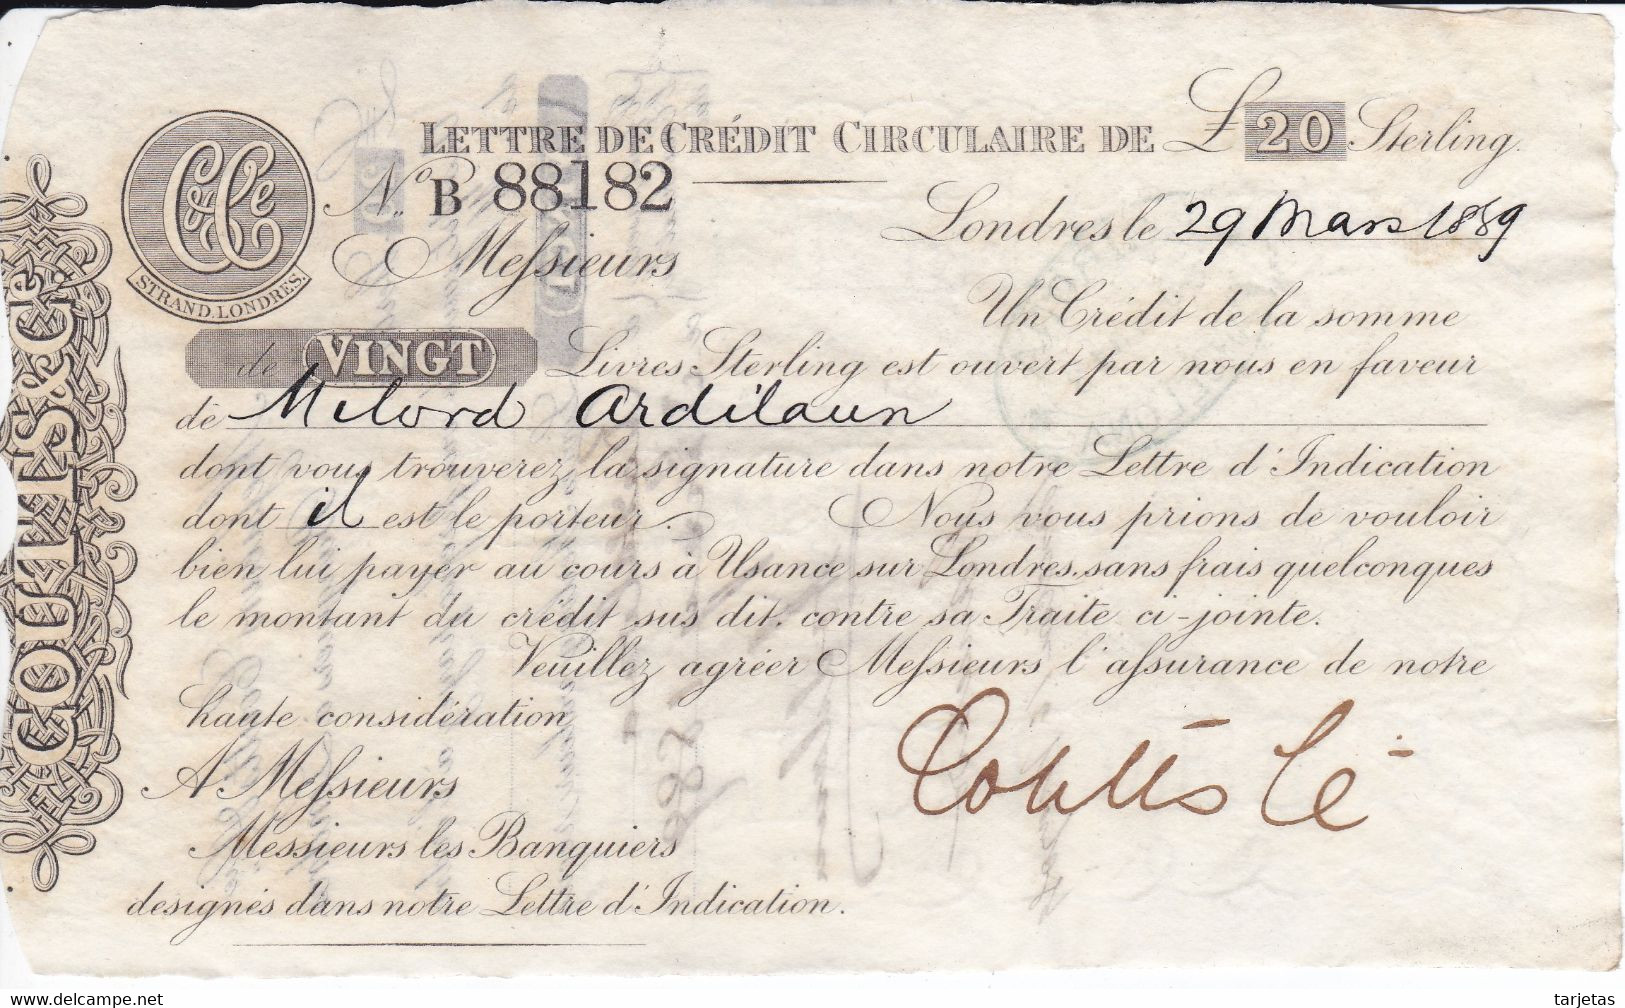 COUTTS & Cie
C & Ce
STRAND. LONDRES.
LETTRE DE CRÉDIT CIRCULAIRE DE £ 20 Sterling.
No. B 88182
Londres le 29 Mars 1889
Messieurs
Un Crédit de la somme
de VINGT Livres Sterling est ouvert par nous en faveur
de Milord Ardilaun
dont vous trouverez la signature dans notre Lettre d'Indication
dont il est le porteur. Nous vous prions de vouloir
bien lui payer au cours à Usance sur Londres, sans frais quelconques
le montant du crédit sus dit, contre sa Traite ci-jointe.
Veuillez agréer Messieurs l'assurance de notre
haute considération
Coutts Ce
A Messieurs
Messieurs les Banquiers
designés dans notre Lettre d'Indication.
www.delcampe.net
tarjetas